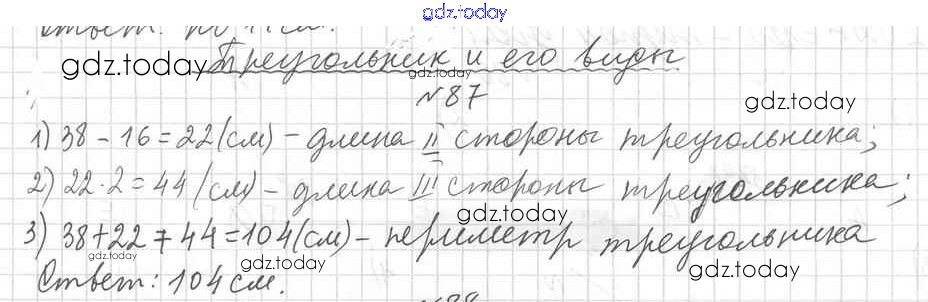 gdz.today
Ответ: по 11 см.
gdz.today Треугольник и его виды
gdz.today
№87
gdz.today
1) 38 - 16 = 22 (см) - длина II стороны треугольника;
gdz.today
2) 22 · 2 = 44 (см) - длина III стороны треугольника;
gdz.today
3) 38 + 22 + 44 = 104 (см) - периметр треугольника
gdz.today gdz.today gdz.today
Ответ: 104 см.
№88